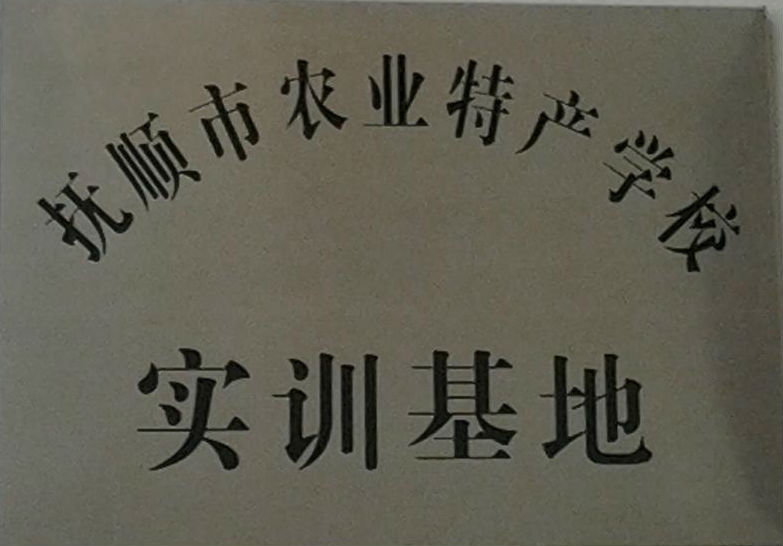 抚顺市农业特产学校
实训基地